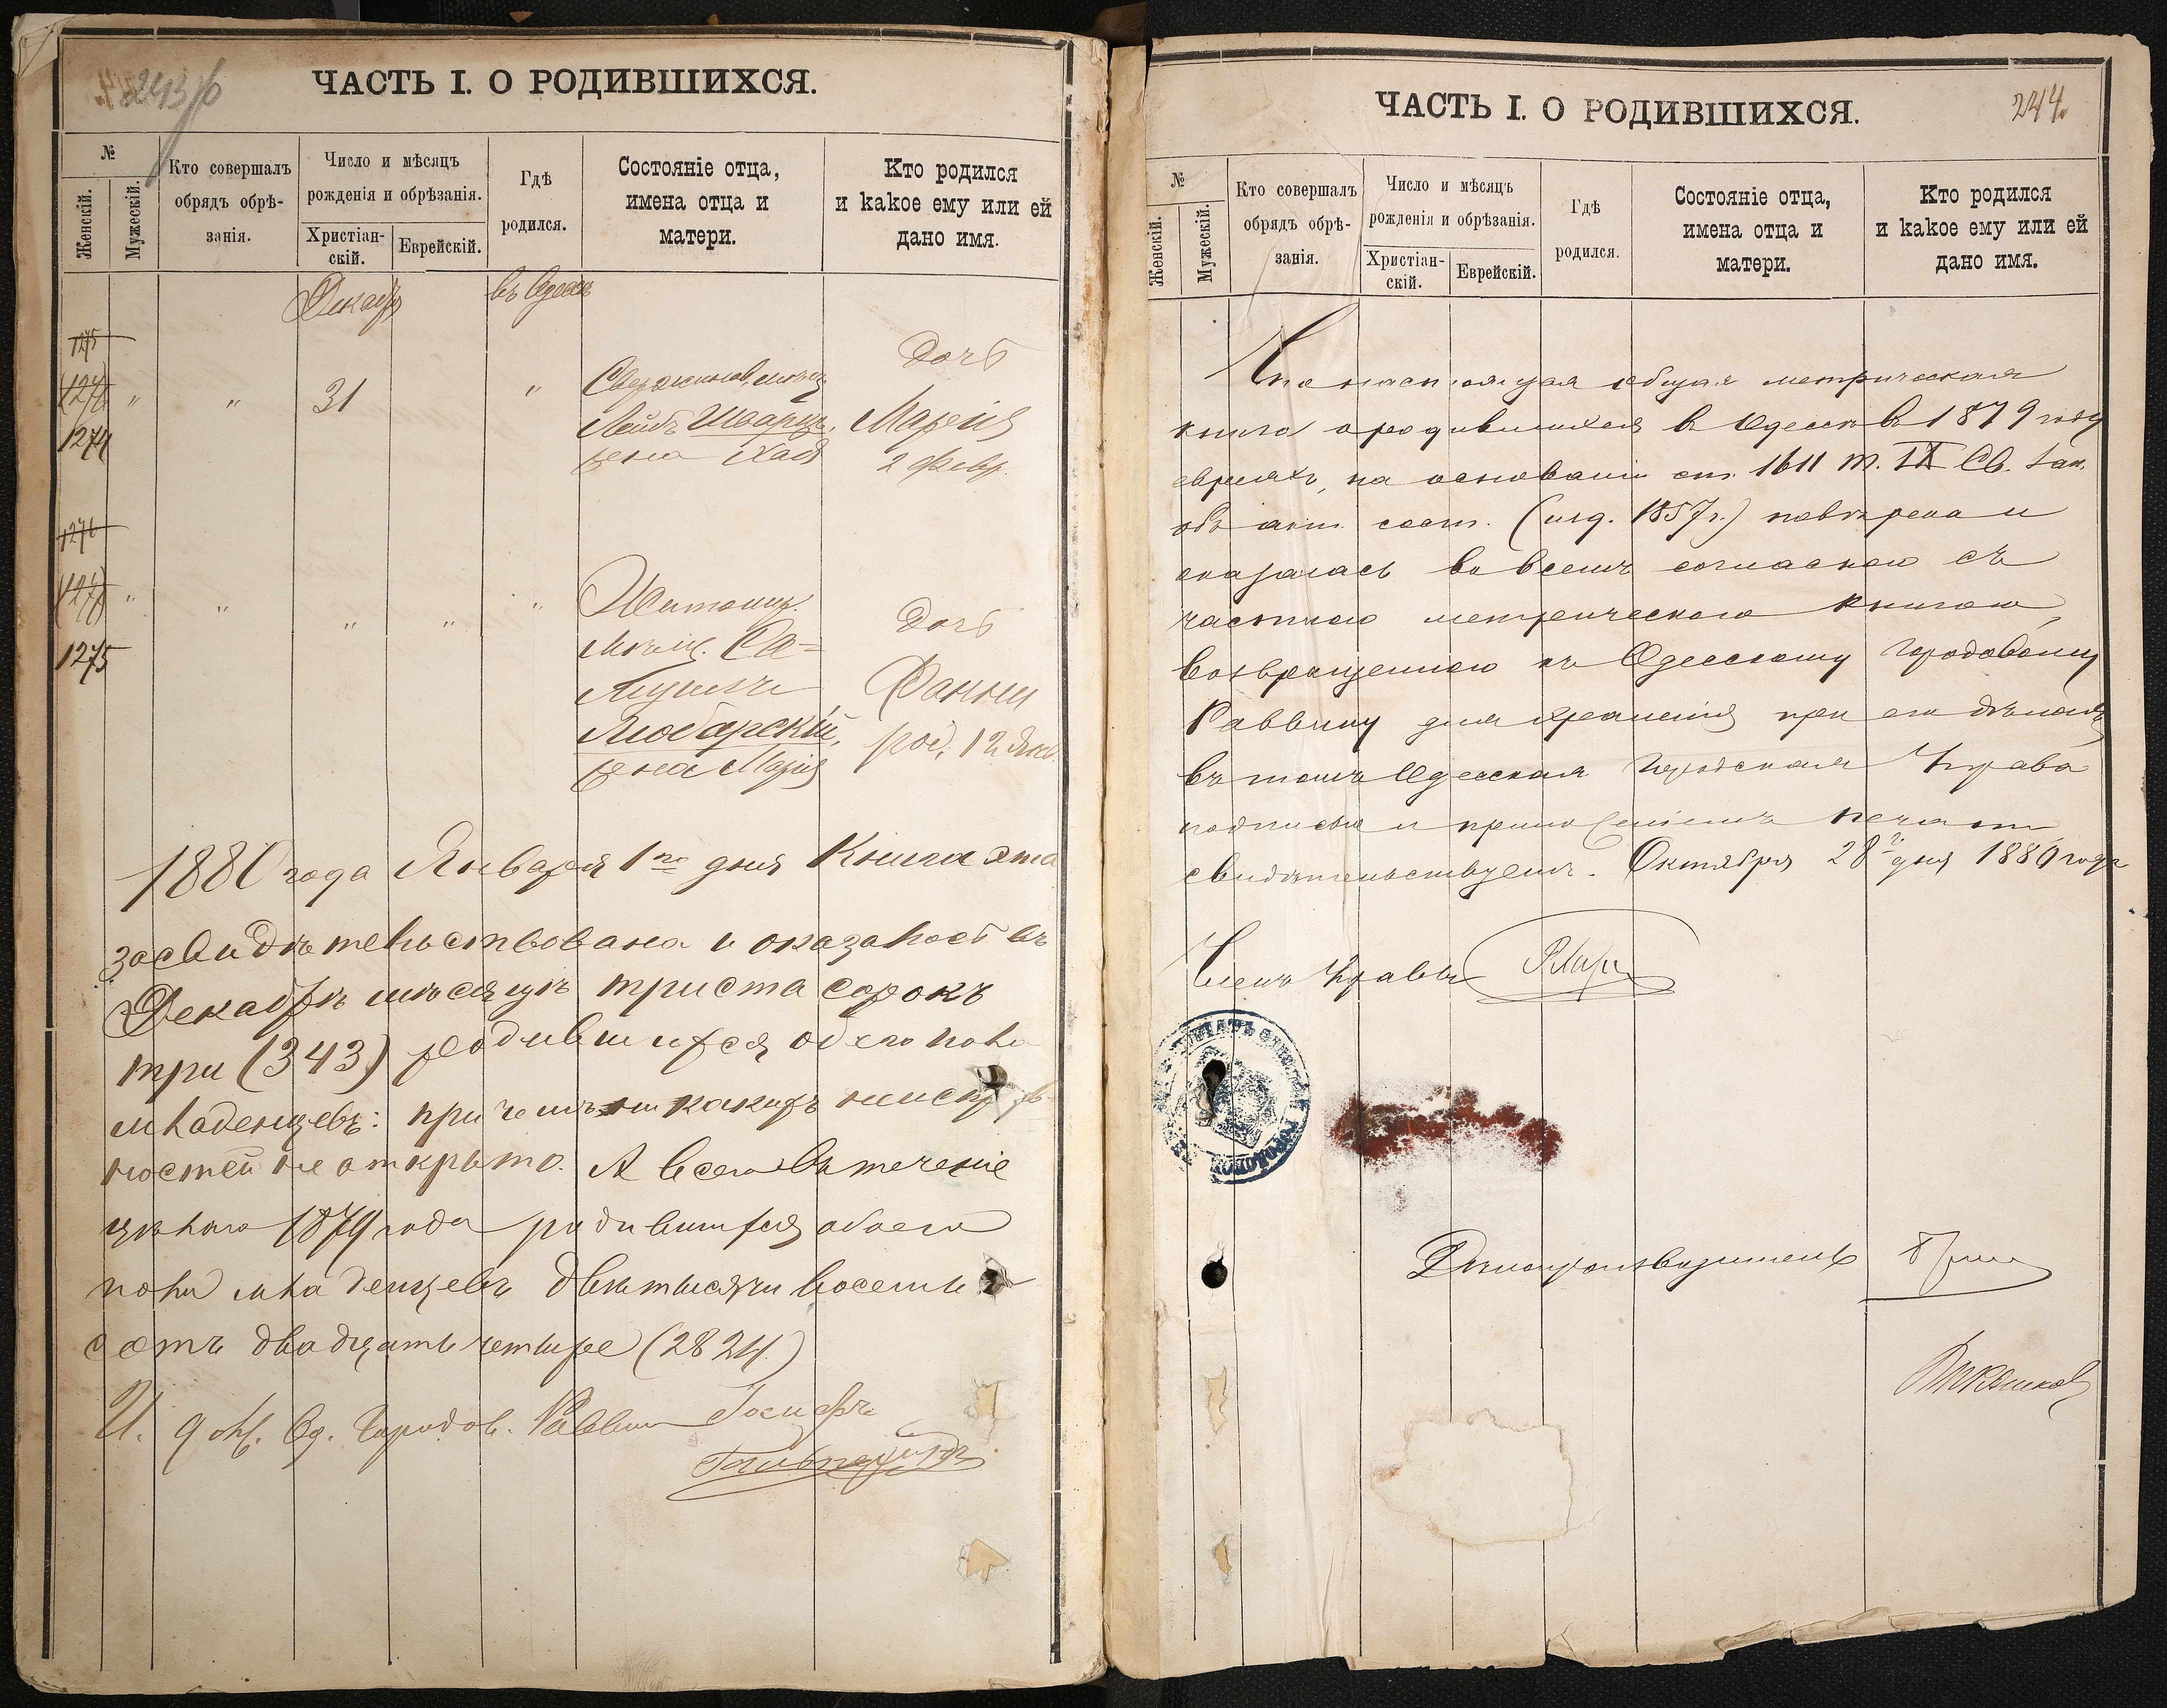 243 об
ЧАСТЬ I. О РОДИВШИХСЯ.
№
Женскій.
Мужескій.
Кто совершалъ
обрядъ обрѣ-
занія.
Число и мѣсяцъ
рожденія и обрѣзанія.
Христіан-
скій.
Еврейскій.
Гдѣ
родился.
Состояніе отца,
имена отца и
матери.
Кто родился
и какое ему или ей
дано имя.
Декабр
въ Одессѣ
1275
1274
" " 31 "
Лейбъ Шварцъ,
жена Хая
Дочь
Марія
2 Февр.
1276
1275
" " " " "
Житомир.
мѣщ. Са-
Любарскій,
жена Марія
Дочь
Фанни
род. 12 Янв.
1880 года Января 1го дня Книга эта
засвидѣтельствована и оказалось въ
Декабрѣ мѣсяцѣ триста сорокъ
три (343) родившихся обоего пола
младенцевъ: при чемъ никакихъ неисправ-
ностей не открыто. А всего въ теченіе
цѣлаго 1879 года родившихся обоего
пола младенцевъ двѣ тысячи восемь
сотъ двадцать четыре (2824)
И. Од. Городов. Раввин Іосифъ
ЧАСТЬ I. О РОДИВШИХСЯ.
244.
№
Женскій.
Мужескій.
Кто совершалъ
обрядъ обрѣ-
занія.
Число и мѣсяцъ
рожденія и обрѣзанія.
Христіан-
скій.
Еврейскій.
Гдѣ
родился.
Состояніе отца,
имена отца и
матери.
Кто родился
и какое ему или ей
дано имя.
Что настоящая общая метрическая
книга о родившихся въ Одессѣ въ 1879 году
евреяхъ, на основаніи ст. 1611 т. IX Св. Зак.
объ акт. сост. (изд. 1857 г.) повѣрена и
оказалась во всемъ согласною съ
частною метрическою книгою,
возвращенною къ Одесскому Городовому
Раввину для храненія при его дѣлахъ
въ томъ Одесская Городская Управа
подписью и приложеніемъ печати
свидѣтельствуетъ. Октября 28го дня 1880 года
Членъ Управы
Дѣлопроизводитель